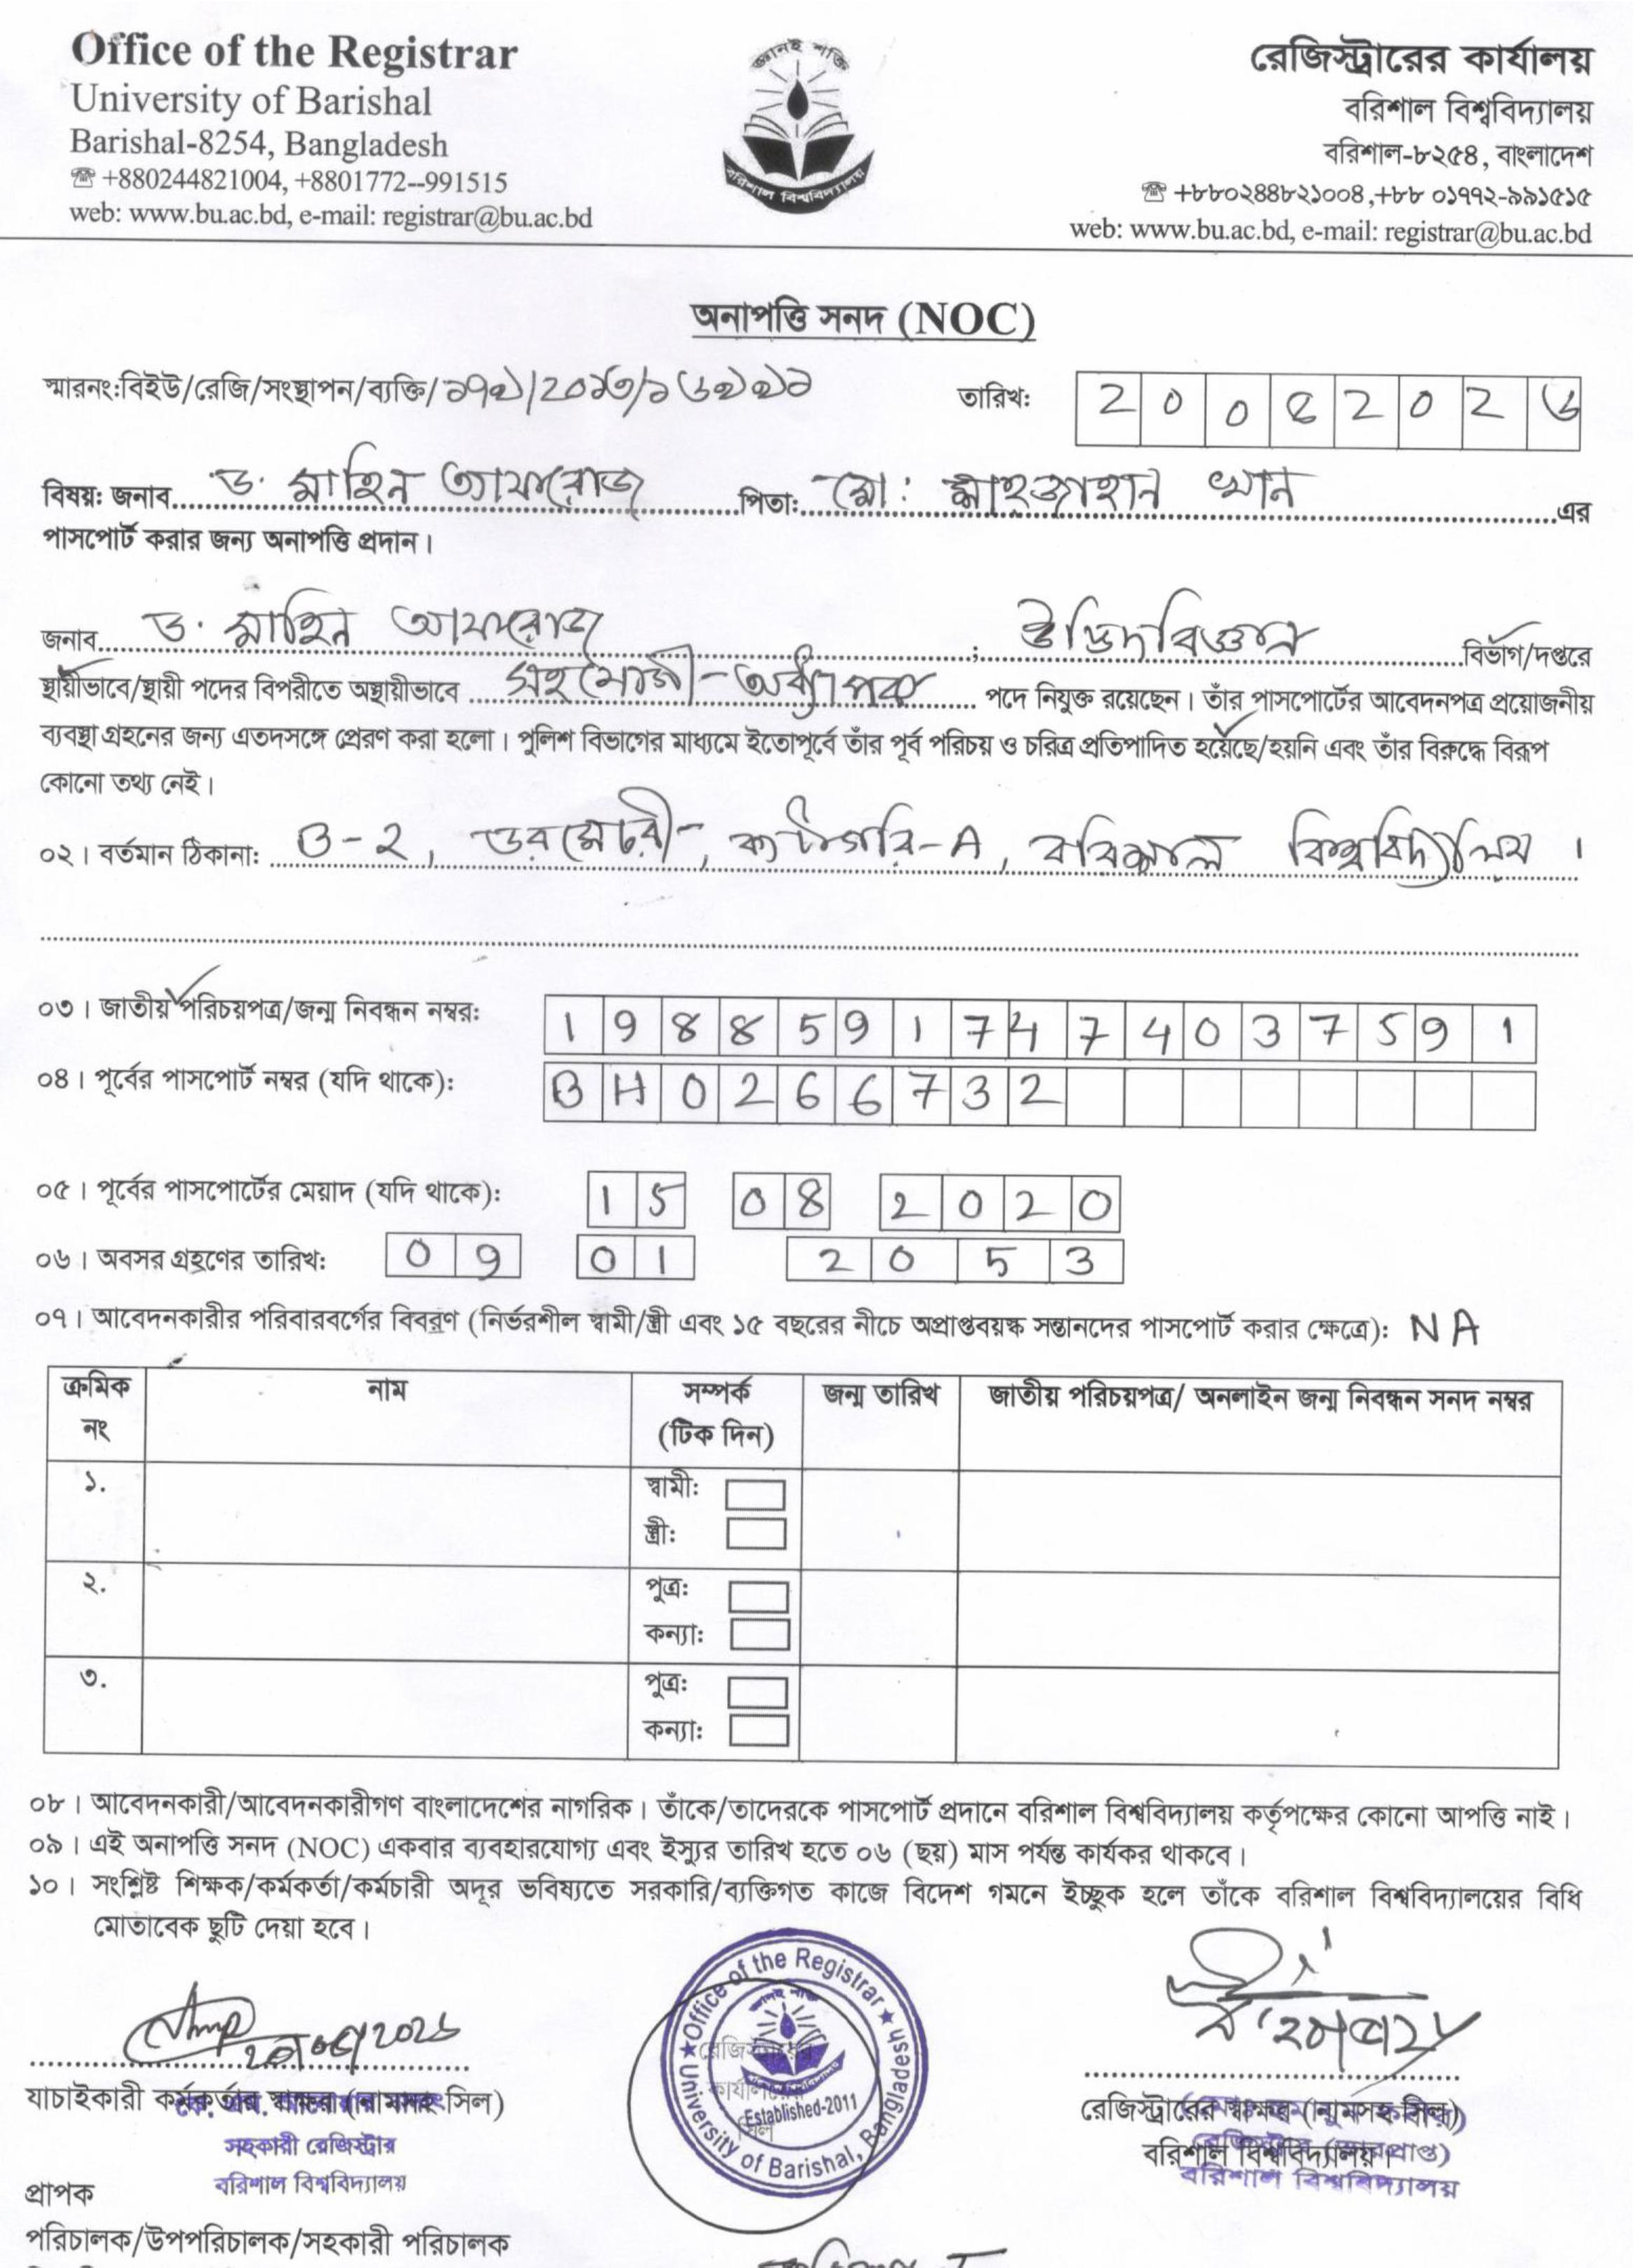 Office of the Registrar
University of Barishal
Barishal-8254, Bangladesh
☏ +880244821004, +8801772--991515
web: www.bu.ac.bd, e-mail: registrar@bu.ac.bd
জ্ঞানই শক্তি
বরিশাল বিশ্ববিদ্যালয়
রেজিস্ট্রারের কার্যালয়
বরিশাল বিশ্ববিদ্যালয়
বরিশাল-৮২৫৪, বাংলাদেশ
☏ +৮৮০২৪৪৮২১০০৪,+৮৮ ০১৭৭২-৯৯১৫১৫
web: www.bu.ac.bd, e-mail: registrar@bu.ac.bd
অনাপত্তি সনদ (NOC)
স্মারনং:বিইউ/রেজি/সংস্থাপন/ব্যক্তি/ তারিখ: 2 0 0 2 0 2
বিষয়: জনাব ড. মাহিন আফরোজ পিতা: মো: শাহজাহান খান এর
পাসপোর্ট করার জন্য অনাপত্তি প্রদান।
জনাব ড. মাহিন আফরোজ ; উদ্ভিদবিজ্ঞান বিভাগ/দপ্তরে
স্থায়ীভাবে/স্থায়ী পদের বিপরীতে অস্থায়ীভাবে সহযোগী-অধ্যাপক পদে নিযুক্ত রয়েছেন। তাঁর পাসপোর্টের আবেদনপত্র প্রয়োজনীয়
ব্যবস্থা গ্রহনের জন্য এতদসঙ্গে প্রেরণ করা হলো। পুলিশ বিভাগের মাধ্যমে ইতোপূর্বে তাঁর পূর্ব পরিচয় ও চরিত্র প্রতিপাদিত হয়েছে/হয়নি এবং তাঁর বিরুদ্ধে বিরূপ
কোনো তথ্য নেই।
০২। বর্তমান ঠিকানা: B-2, ডরমেটরী, ক্যাটাগরি-A, বরিশাল বিশ্ববিদ্যালয়।
০৩। জাতীয় পরিচয়পত্র/জন্ম নিবন্ধন নম্বর: 1 9 8 8 5 9 1 7 4 7 4 0 3 7 5 9 1
০৪। পূর্বের পাসপোর্ট নম্বর (যদি থাকে): B H 0 2 6 6 7 3 2
০৫। পূর্বের পাসপোর্টের মেয়াদ (যদি থাকে): 1 5 0 8 2 0 2 0
০৬। অবসর গ্রহণের তারিখ: 0 9 0 1 2 0 5 3
০৭। আবেদনকারীর পরিবারবর্গের বিবরণ (নির্ভরশীল স্বামী/স্ত্রী এবং ১৫ বছরের নীচে অপ্রাপ্তবয়স্ক সন্তানদের পাসপোর্ট করার ক্ষেত্রে): NA
ক্রমিক নং নাম সম্পর্ক (টিক দিন) জন্ম তারিখ জাতীয় পরিচয়পত্র/ অনলাইন জন্ম নিবন্ধন সনদ নম্বর
১. স্বামী:
স্ত্রী:
২. পুত্র:
কন্যা:
৩. পুত্র:
কন্যা:
০৮। আবেদনকারী/আবেদনকারীগণ বাংলাদেশের নাগরিক। তাঁকে/তাদেরকে পাসপোর্ট প্রদানে বরিশাল বিশ্ববিদ্যালয় কর্তৃপক্ষের কোনো আপত্তি নাই।
০৯। এই অনাপত্তি সনদ (NOC) একবার ব্যবহারযোগ্য এবং ইস্যুর তারিখ হতে ০৬ (ছয়) মাস পর্যন্ত কার্যকর থাকবে।
১০। সংশ্লিষ্ট শিক্ষক/কর্মকর্তা/কর্মচারী অদূর ভবিষ্যতে সরকারি/ব্যক্তিগত কাজে বিদেশ গমনে ইচ্ছুক হলে তাঁকে বরিশাল বিশ্ববিদ্যালয়ের বিধি
মোতাবেক ছুটি দেয়া হবে।
Office of the Registrar
University of Barishal, Bangladesh
Established-2011
রেজিস্ট্রারের
কার্যালয়ের
সিল
যাচাইকারী কর্মকর্তার স্বাক্ষর (নামসহ সিল)
সহকারী রেজিস্ট্রার
বরিশাল বিশ্ববিদ্যালয়
রেজিস্ট্রারের স্বাক্ষর (নামসহ সিল)
বরিশাল বিশ্ববিদ্যালয়।
বরিশাল বিশ্ববিদ্যালয়
প্রাপক
পরিচালক/উপপরিচালক/সহকারী পরিচালক